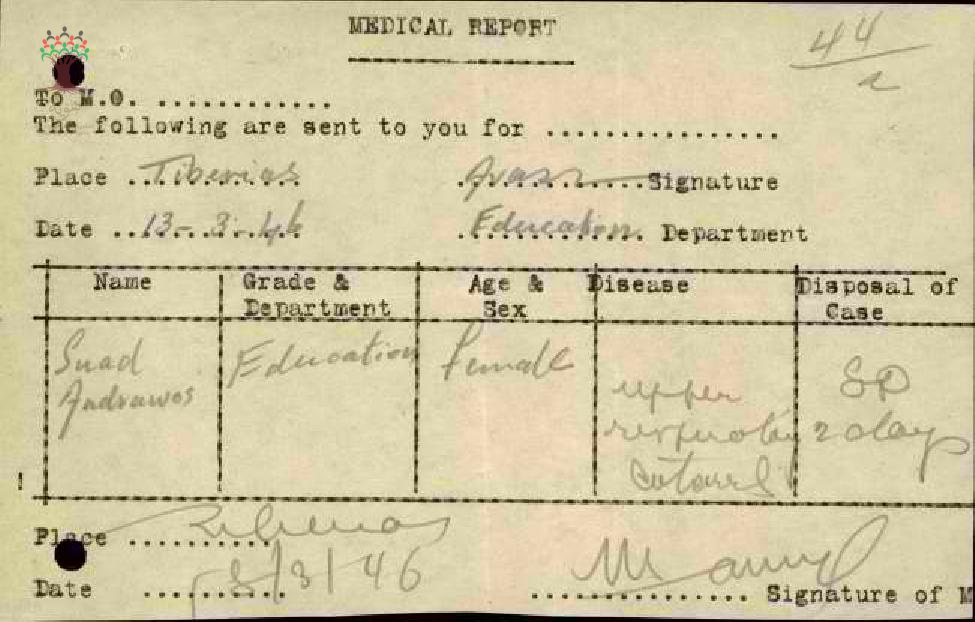 MEDICAL REPORT
44
2
To M.O. .............
The following are sent to you for ................
Place Tiberias
............Signature
Date 13-3-46
Education Department
Name Grade & Department Age & Sex Disease Disposal of Case
Suad Andrawos Education Female upper respiratory catarrh SD 2 days
Place Tiberias
Date 13/3/46
............... Signature of M